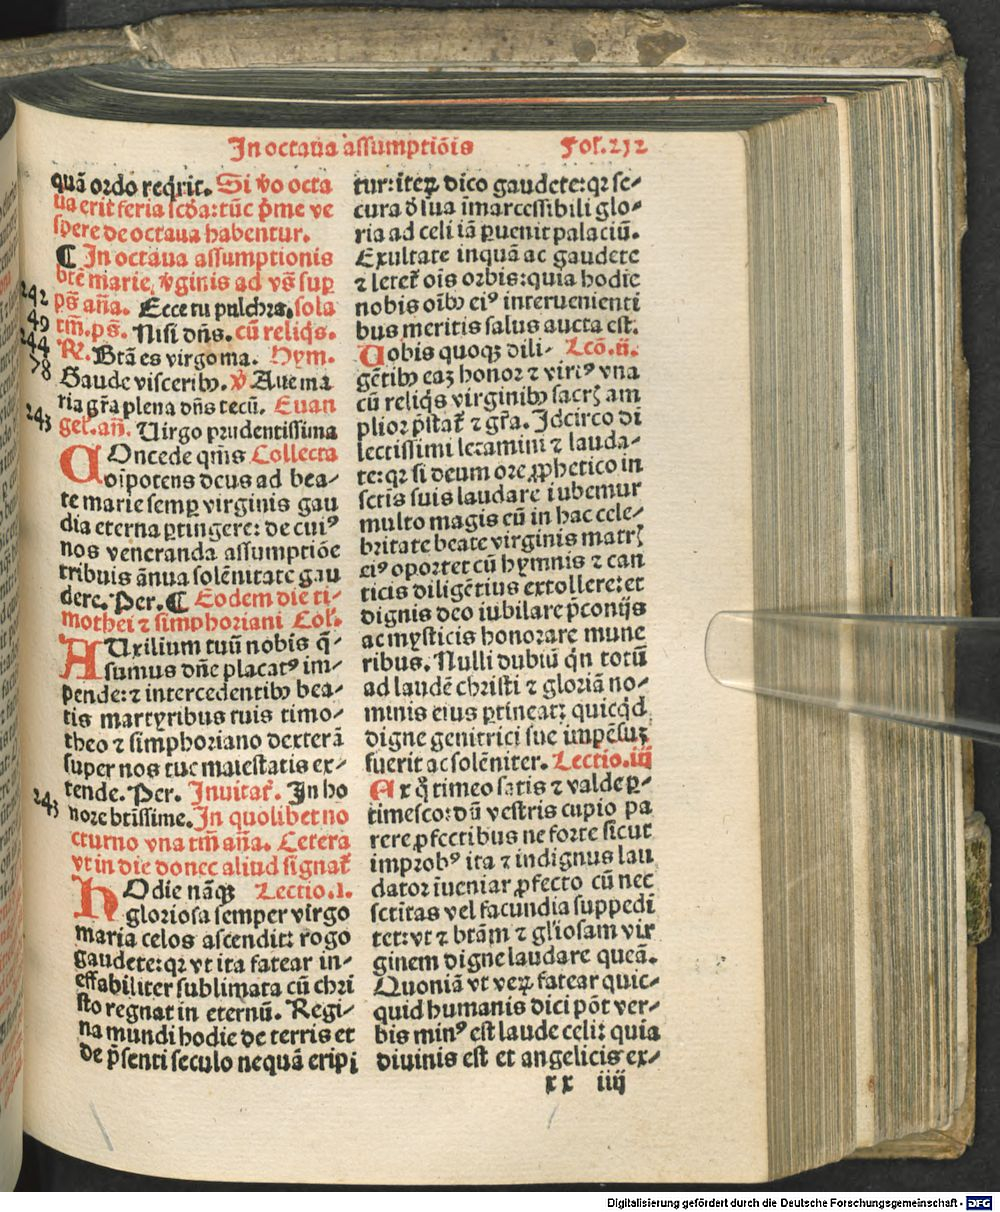 In octaua assumptiōis Fol. 232
quā ordo reqrit. Si vo octa
ua erit feria scda: tūc pme ve
spere de octaua habentur.
¶ In octaua assumptionis
bte marie vginis ad vs sup
242 ps aña. Ecce tu pulchra. sola
49 tm̄. ps. Nisi dn̄s. cū reliqs.
244 R. Btā es virgo ma. Hym.
78 Gaude visceribꝰ. v Aue ma
ria gr̄a plena dn̄s tecū. Euan
243 gel. an̄. Uirgo prudentissima
COncede qm̄s Collecta
oīpotens deus ad bea-
te marie semp virginis gau
dia eterna ꝑtingere: de cuiꝰ
nos veneranda assumptiōe
tribuis ānua solēnitate gau
dere. Per. ¶ Eodem die ti-
mothei ⁊ simphoriani Col.
AUxilium tuū nobis q̄-
sumus dn̄e placatꝰ im-
pende: ⁊ intercedentibꝰ bea-
tis martyribus tuis timo-
theo ⁊ simphoriano dexterā
super nos tue maiestatis ex-
tende. Per. Inuitat. In ho
243 nore btissime. In quolibet no
cturno vna tm̄ aña. Cetera
vt in die donec aliud signat
HOdie nāqꝫ Lectio. i.
gloriosa semper virgo
maria celos ascendit: rogo
gaudete: qꝛ vt ita fatear in-
effabiliter sublimata cū chri
sto regnat in eternū. Regi-
na mundi hodie de terris et
de p̄senti seculo nequā eripi
tur: iteꝝ dico gaudete: qꝛ se-
cura d sua īmarcessibili glo-
ria ad celi iā ꝑuenit palaciū.
Exultate inquā ac gaudete
⁊ letet oīs orbis: quia hodie
nobis oībꝰ eiꝰ interuenienti
bus meritis salus aucta est.
Uobis quoqꝫ dili- Lcō. ii.
gētibꝰ eaꝫ honor ⁊ virtꝰ vna
cū reliqs virginibꝰ sacrꝭ am
plior p̄stat ⁊ gr̄a. Idcirco di
lectissimi letamini ⁊ lauda-
te: qꝛ si deum ore ꝓphetico in
sctis suis laudare iubemur
multo magis eū in hac cele-
britate beate virginis matrꝭ
eiꝰ oportet cū hymnis ⁊ can
ticis diligētius extollere: et
dignis deo iubilare p̄conijs
ac mysticis honorare mune
ribus. Nulli dubiū qn totū
ad laudē christi ⁊ gloriā no-
minis eius ꝑtineat: quicqd
digne genitrici sue impēsuꝫ
fuerit ac solēniter. Lectio. iij
AT q timeo satis ⁊ valde ꝑ-
timesco: dū vestris cupio pa
rere ꝓfectibus ne forte sicut
improbꝰ ita ⁊ indignus lau
dator iueniar ꝓfecto cū nec
sctitas vel facundia suppedi
tet: vt ⁊ btam ⁊ gliosam vir
ginem digne laudare queā.
Quoniā vt veꝝ fatear quic-
quid humanis dici pōt ver-
bis minꝰ est laude celi: quia
diuinis est et angelicis ex-
xx iiij
Digitalisierung gefördert durch die Deutsche Forschungsgemeinschaft - DFG